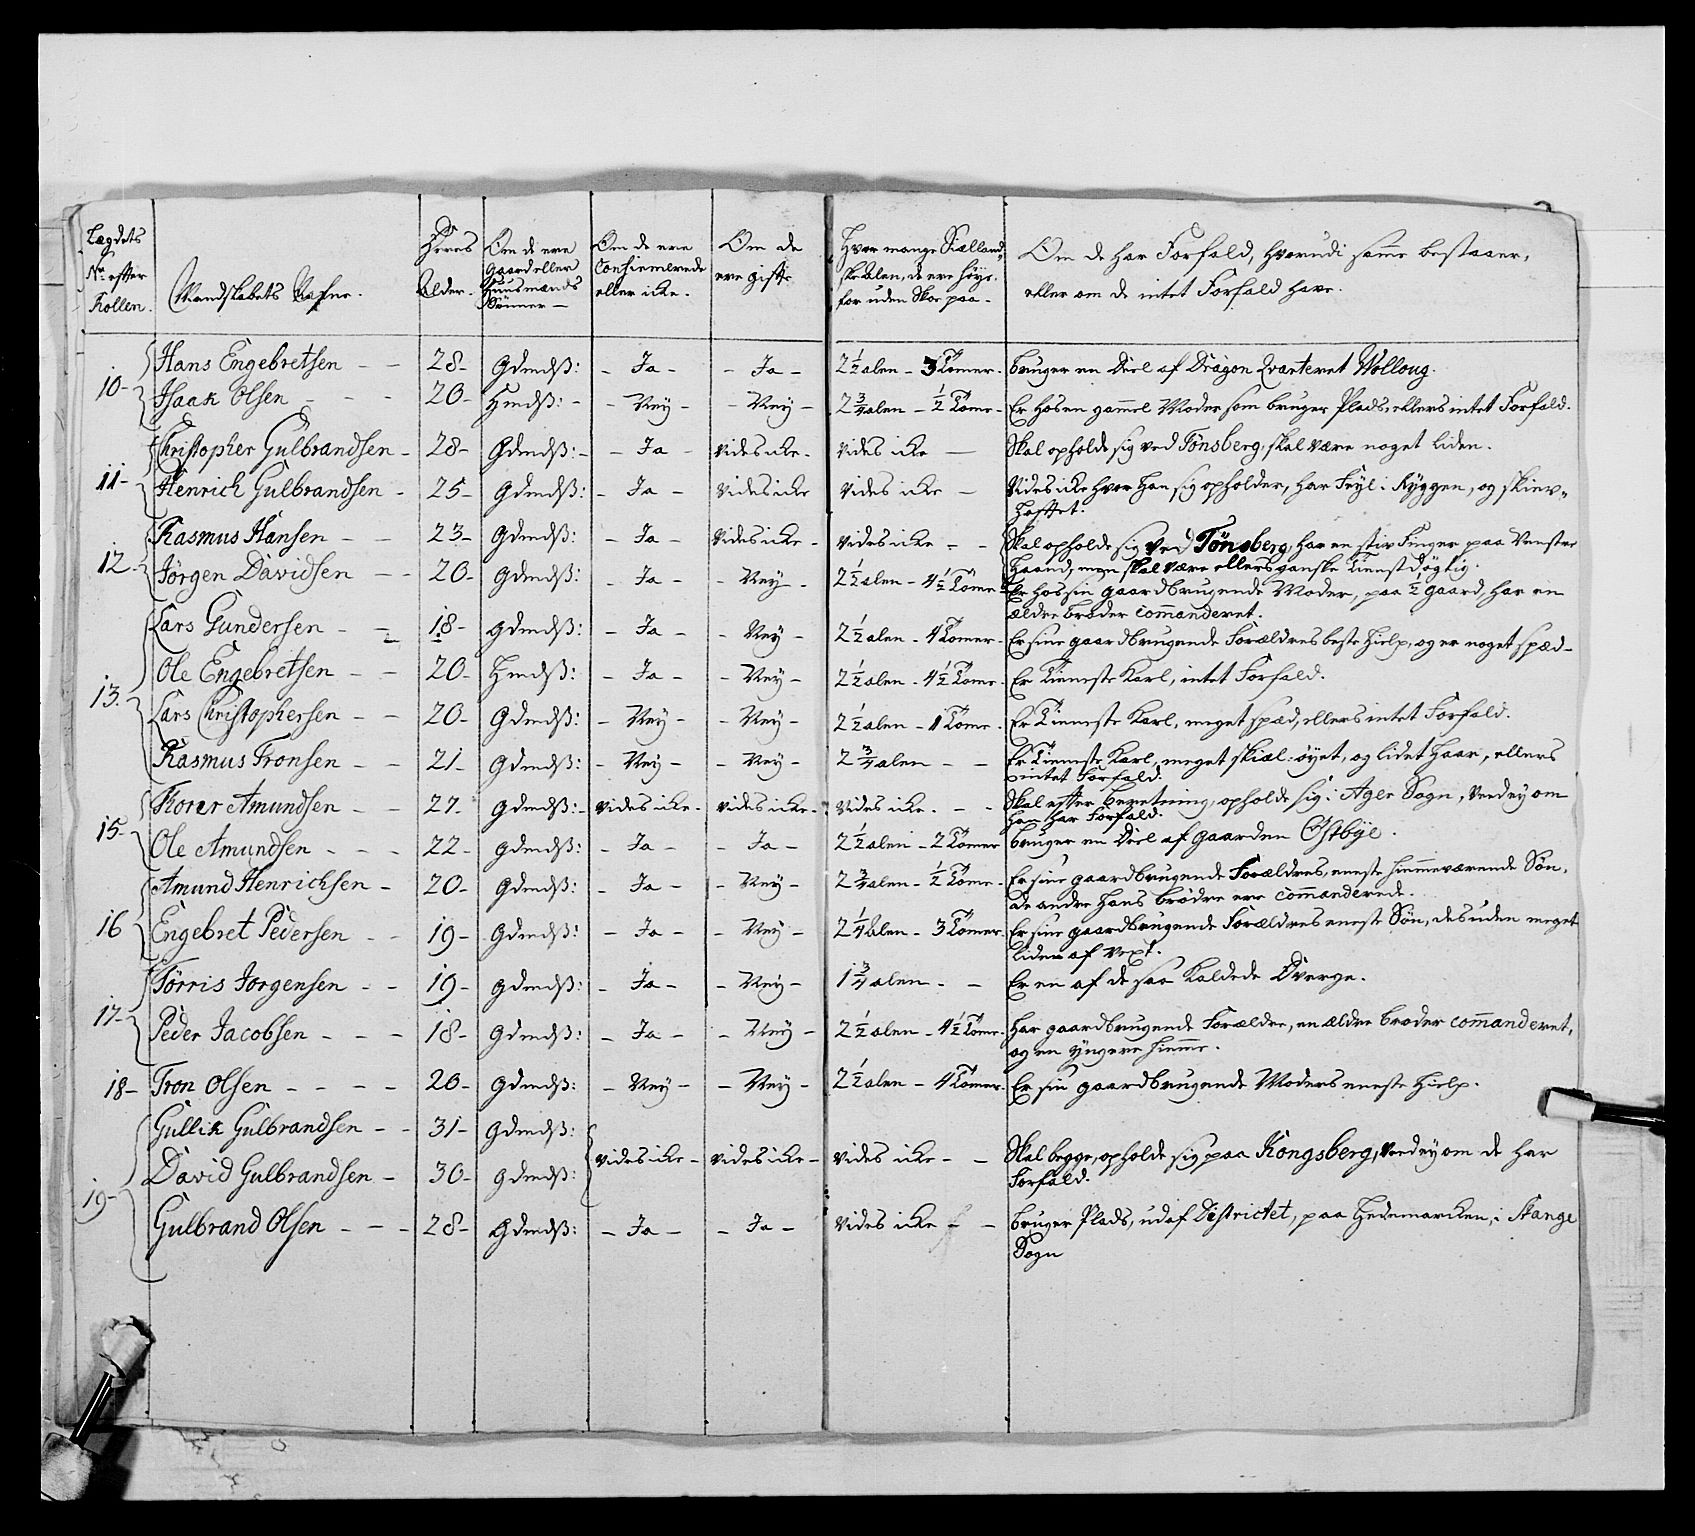 Lægdets No. efter Rollen. | Mandskabets Nafne. | Deres Alder. | Om de ere Gaard eller Huusmænds Sönner — | Om de ere Confirmerede eller icke. | Om de ere gifte | Hvor mange Siællandske Alen, de ere høye, for uden Skoe paa. | Om de har Forfald, hvorudi samme bestaaer, eller om de intet Forfald have.
10- Hans Engebretsen - - 28- Gdmdß: - Ja - - Ja - 2½ alen - 3 Tomer. bruger en Deel af Dragon Qvarteret Wolloug.
Isaak Olsen - - - 20- Hmdß: - - Ney - - Ney - 2¾ alen - ½ Tome - Er hos en gammel Moder som bruger Plads, ellers intet Forfald.
11- Christopher Gulbrandsen - 28- Gdmdß: - - Ja - vides icke - vides icke — Skal opholde sig ved Tönsberg, skal være noget liden.
Henrich Gulbrandsen - 25- Gdmdß: - Ja - vides icke vides icke - Vides icke hvor han sig opholder, har Feyl i Ryggen, og skiev-
hoftet.
12- Rasmus Hansen - - 23- Gdmdß: - Ja - vides icke - vides icke - - Skal opholde sig ved Tönsberg, har en stiv Finger paa Venstre
haand, men skal være ellers ganske tienstdygtig.
Jörgen Davidsen - - 20- Gdmdß: - Ja - - Ney - 2½ alen - 4½ Tome - Er hos sin gaardbrugende Moder, paa ½ gaard, har en
ældre broder commanderet.
13. Lars Gundersen - - 18- Gdmdß: - Ja - - Ney - 2½ alen - 4 Tomer - Er sine gaardbrugende Forældres beste hielp, og er noget spæd -
Ole Engebretsen - - 20- Hmdß: - Ja - - Ney - 2½ alen - 4½ Tome - Er Tieneste Karl, intet Forfald.
Lars Christophersen - - 20- Gdmdß: - Ney - - Ney - 2½ alen - 1 Tome - Er Tieneste Karl, meget spæd, ellers intet Forfald.
Rasmus Tronsen - - 21- Gdmdß: - Ney - - Ney - 2¾ alen - - Er Tieneste Karl, meget skiæl-øyet, og lidet haar, ellers
intet Forfald.
15- Korer Amundsen - - 27- Gdmdß: - vides icke - vides icke - vides icke. - - Skal efter beretning, opholde sig i Ager Sogn, veed ey om
han har Forfald.
Ole Amundsen - - - 22- Gdmdß: - Ja - - Ja - 2½ alen - 2 Tomer bruger en Deel af gaarden Östbye.
16 Amund Henrichsen - 20- Gdmdß: - Ja - - Ney - 2¾ alen - ½ Tome - Er sine gaardbrugende Forældres, eneste hiemmeværende Sön,
de andre hans brødre ere commanderede.
Engebret Pedersen - - 19- Gdmdß: - Ja - - Ney - 2¼ alen - 3 Tomer. Er sine gaardbrugende Forældres eneste Sön, desuden meget
liden af vext.
17- Törris Jorgensen - - 19- Gdmdß: - Ja - - Ney - 1¾ alen - - Er en af de saa kaldede Dverge.
Peder Jacobsen - - - 18- Gdmdß: - Ja - - Ney - 2½ alen - 4½ Tome. har gaardbrugende Forældre, en ældre broder commanderet,
og en yngere hiemme.
18- Tron Olsen - - - - 20- Gdmdß: - Ney - - Ney - 2½ alen - 4 Tomer. Er sin gaardbrugende Moders eneste hielp.
19- Gullik Gulbrandsen - - 31- Gdmdß:
David Gulbrandsen - 30- Gdmdß: vides icke - vides icke - vides icke - - Skal begge, opholde sig paa Kongsberg, veed ey om de har
Forfald.
Gulbrand Olsen - - - 28- Gdmdß: - Ja - - Ja - vides icke - - bruger Plads, ud af Districtet, paa Hedemarcken, i Stange
Sogn